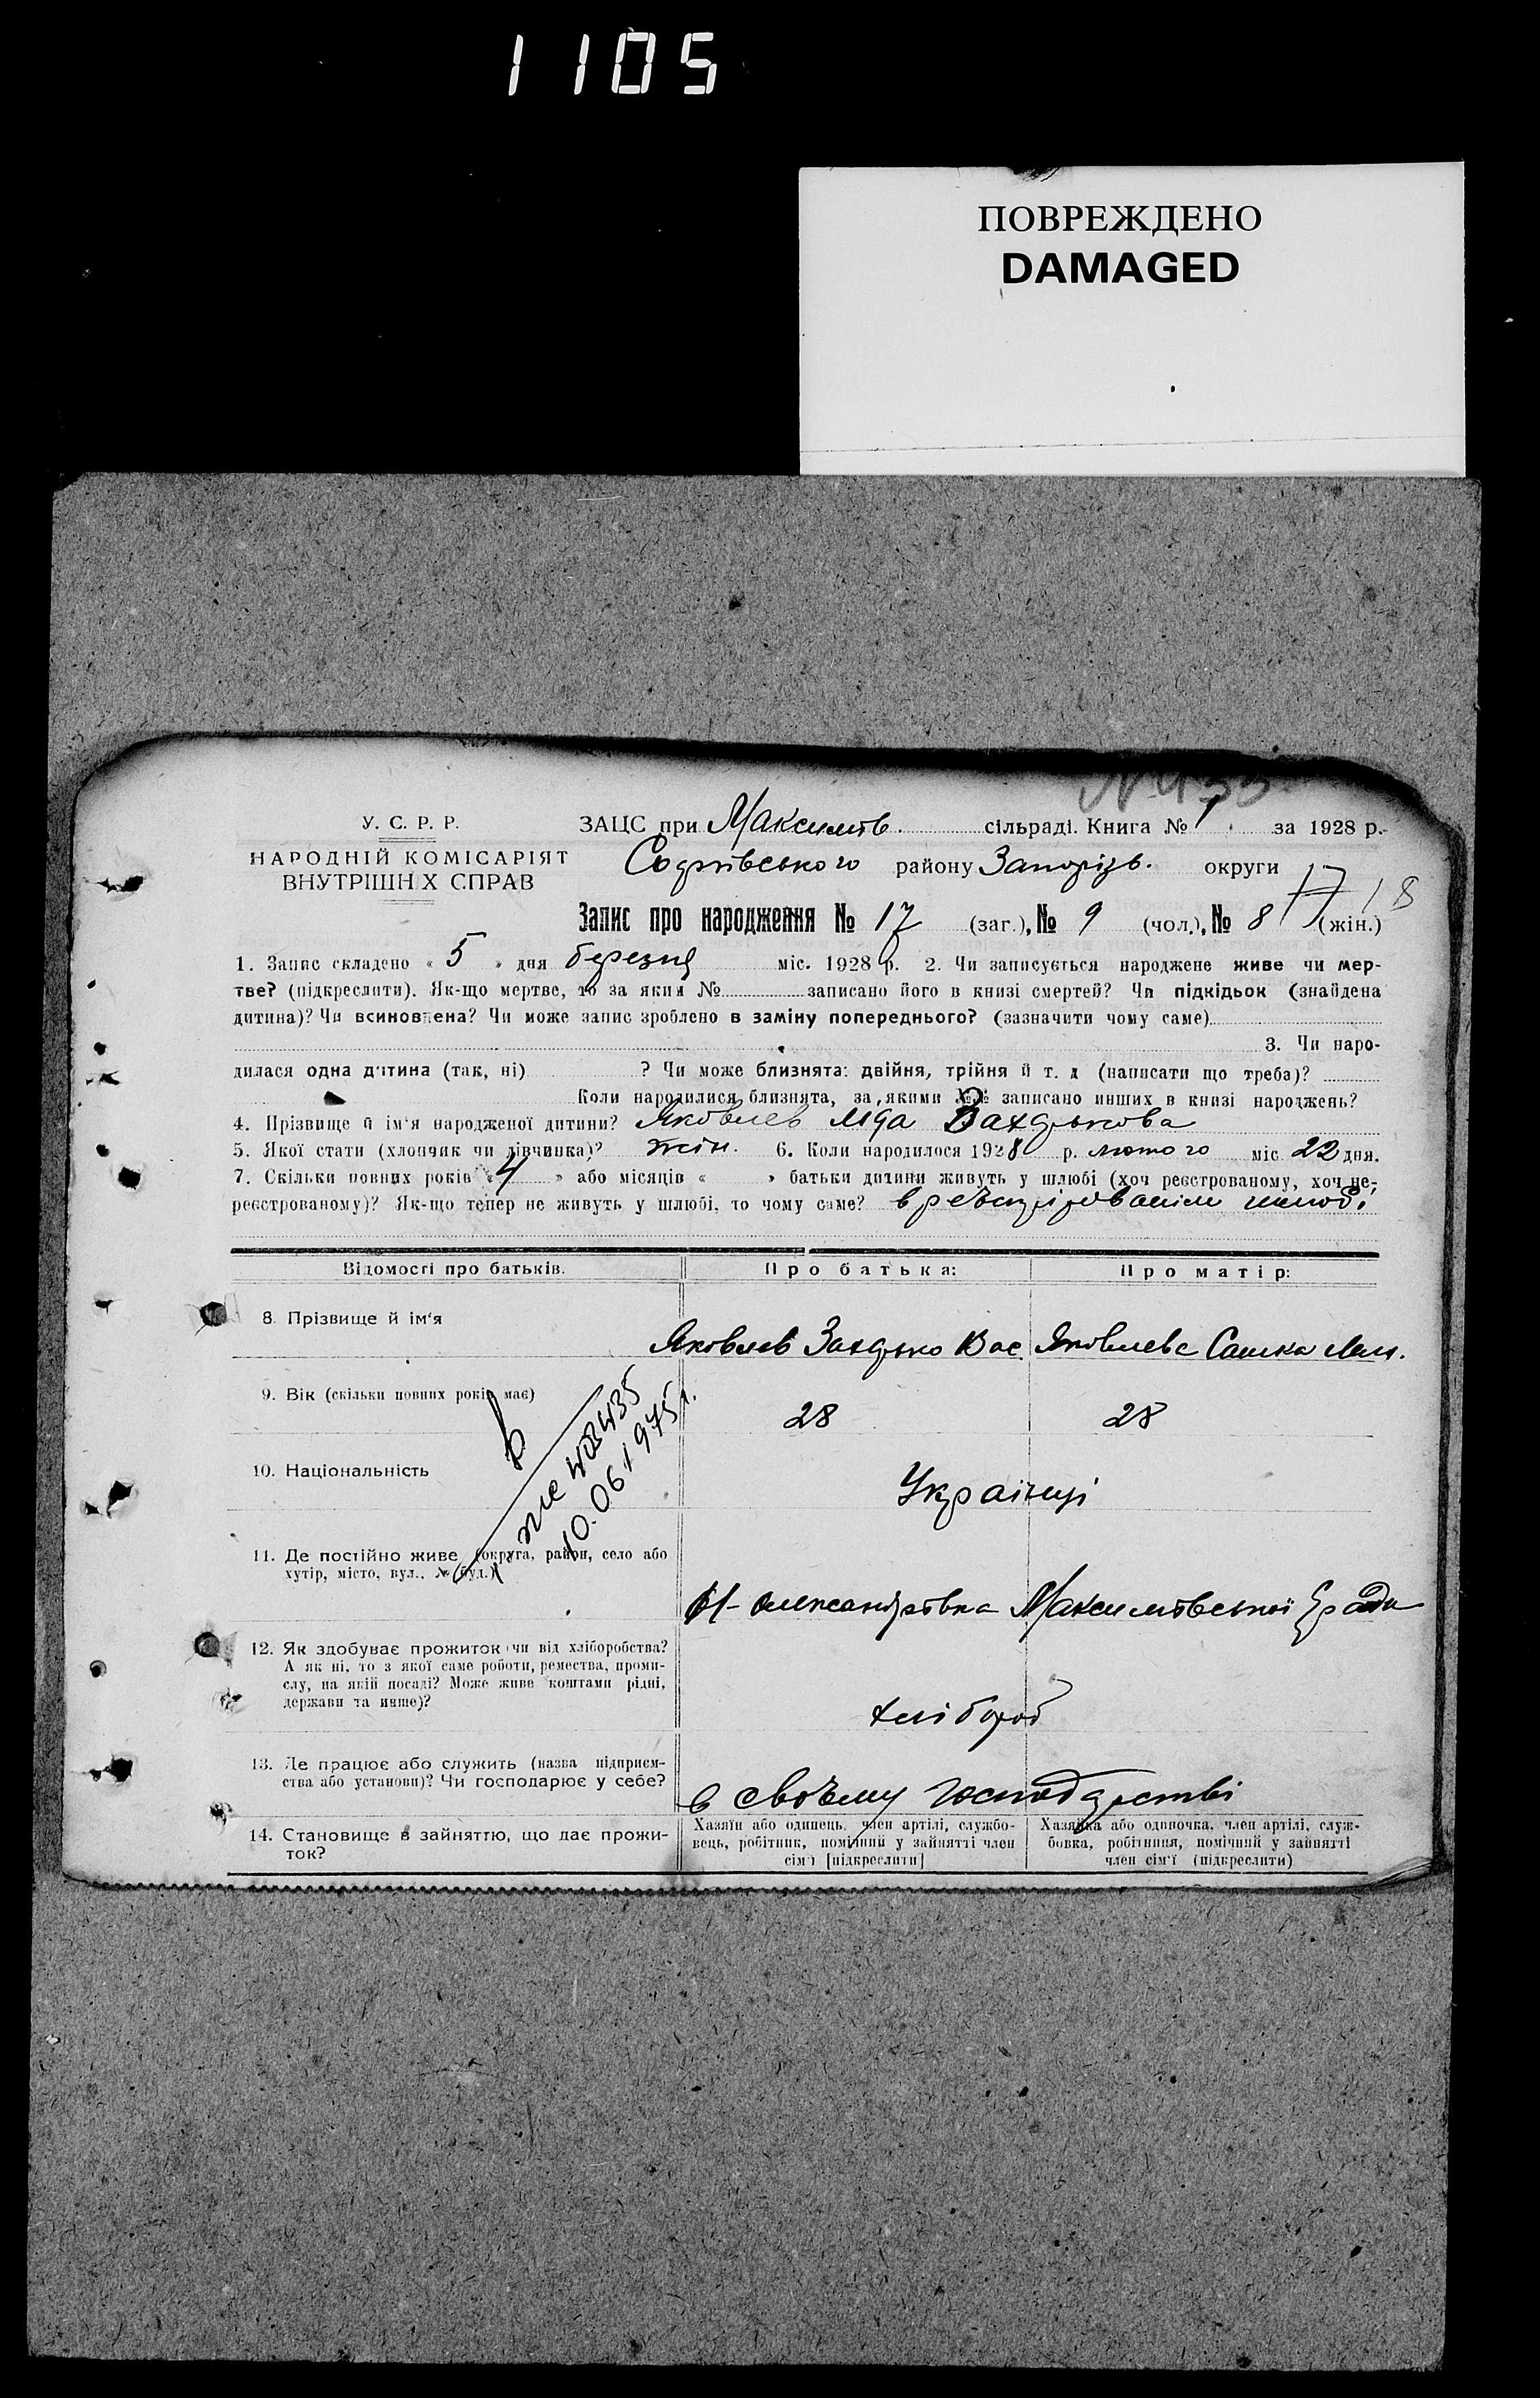 1105
ПОВРЕЖДЕНО
DAMAGED
У. С. Р. Р.
НАРОДНІЙ КОМІСАРІЯТ
ВНУТРІШН Х СПРАВ
ЗАЦС при Максимів. сільраді. Книга № 1 за 1928 р.
району Запорізь. округи
17 18
Запис про народження № 17 (заг.), № 9 (чол.), № 8 (жін.)
1. Запис складено « 5 » дня березня міс. 1928 р. 2. Чи записується народжене живе чи мер-
тве? (підкреслити). Як-що мертве, то за яким № записано його в книзі смертей? Чи підкідьок (знайдена
дитина)? Чи всиновлена? Чи може запис зроблено в заміну попереднього? (зазначити чому саме)
3. Чи наро-
дилася одна дитина (так, ні) ? Чи може близнята: двійня, трійня й т. д (написати що треба)?
Коли народилися близнята, за якими №№ записано инших в книзі народжень?
4. Прізвище й ім'я народженої дитини? Яковлев Іліда Захарькова
5. Якої стати (хлопчик чи дівчинка)? жін. 6. Коли народилося 1928 р. лютого міс 22 дня.
7. Скільки повних років « 4 » або місяців « » батьки дитини живуть у шлюбі (хоч реєстрованому, хоч не-
реєстрованому)? Як-що тепер не живуть у шлюбі, то чому саме? в
Відомості про батьків.
Про батька:
Про матір:
8. Прізвище й ім'я
Яковлев Захарько Вас. Яковлева Сашка
9. Вік (скільки повних років має)
28 28
10.061975г.
10. Національність
Українці
11. Де постійно живе (округа, район, село або
хутір, місто, вул.. № буд.)
Н-Олександрівка Максимівської с/ради
12. Як здобуває прожиток (чи від хліборобства?
А як ні, то з якої саме роботи, ремества, проми-
слу, на якій посаді? Може живе коштами рідні,
держави та инше)?
хлібороб
13. Де працює або служить (назва підприєм-
ства або установи)? Чи господарює у себе?
в своєму господарстві
14. Становище в зайняттю, що дає прожи-
ток?
Хазяїн або одинець, член артілі, службо-
вець, робітник, помічний у зайнятті член
сім'ї [підкреслити]
Хазяйка або одиночка, член артілі, служ-
бовка, робітниця, помічний у зайнятті
член сім'ї (підкреслити)